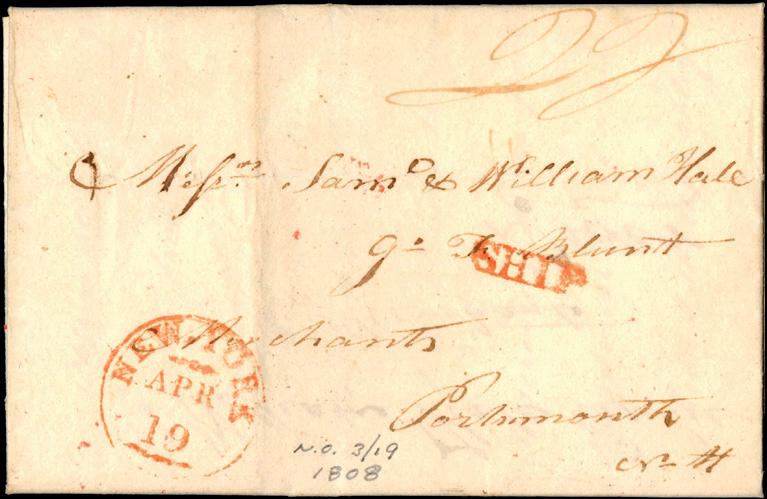 Messrs. Saml & William Hale
F. Blunt
SHIP
Merchants
NEW-YORK
APR
19
Portsmouth
N. H
N.O. 3/19
1808